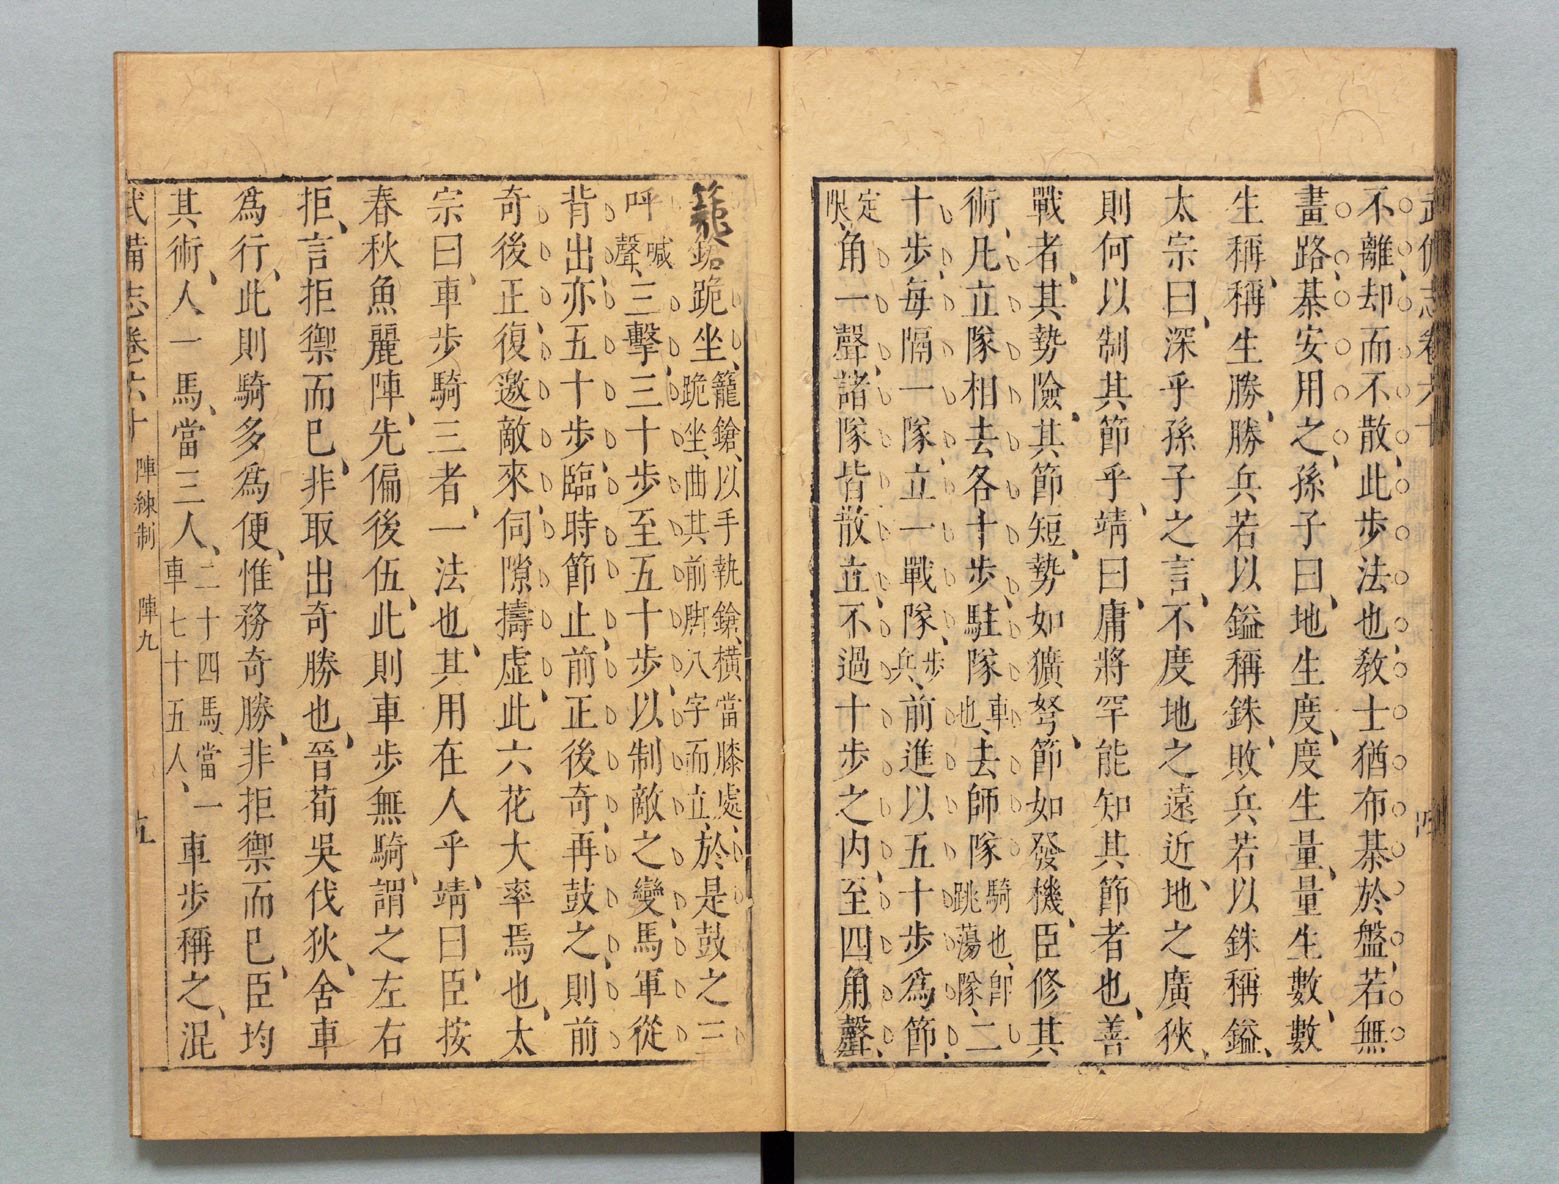 武備志卷六十
四
不離却而不散、此步法也、敎士猶布棊於盤、若無
畫路、棊安用之、孫子曰、地生度、度生量、量生數、數
生稱、稱生勝、勝兵若以鎰稱銖、敗兵若以銖稱鎰、
太宗曰、深乎孫子之言、不度地之遠近、地之廣狹、
則何以制其節乎、靖曰、庸將罕能知其節者也、善
戰者、其勢險、其節短、勢如彍弩、節如發機、臣修其
術、凡立隊相去各十步、駐隊車也、去師隊騎也、卽跳蕩隊、二
十步、每隔一隊、立一戰隊、步兵、前進以五十步爲節、
定限、角一聲、諸隊皆散立、不過十步之內、至四角聲、
籠鎗跪坐、籠鎗、以手執鎗、橫當膝處、跪坐、曲其前脚八字而立、於是鼓之、三
呼喊聲、三擊、三十步至五十步、以制敵之變、馬軍從
背出、亦五十步、臨時節止、前正後奇、再鼓之、則前
奇後正、復邀敵來、伺隙擣虛、此六花大率焉也、太
宗曰、車步騎三者、一法也、其用在人乎、靖曰、臣按
春秋魚麗陣、先偏後伍、此則車步無騎、謂之左右
拒、言拒禦而已、非取出奇勝也、晉荀吳伐狄、舍車
爲行、此則騎多爲便、惟務奇勝、非拒禦而已、臣均
其術、人一馬、當三人、二十四馬、當一車七十五人、車步稱之、混
武備志卷六十 陣練制 陣九
五